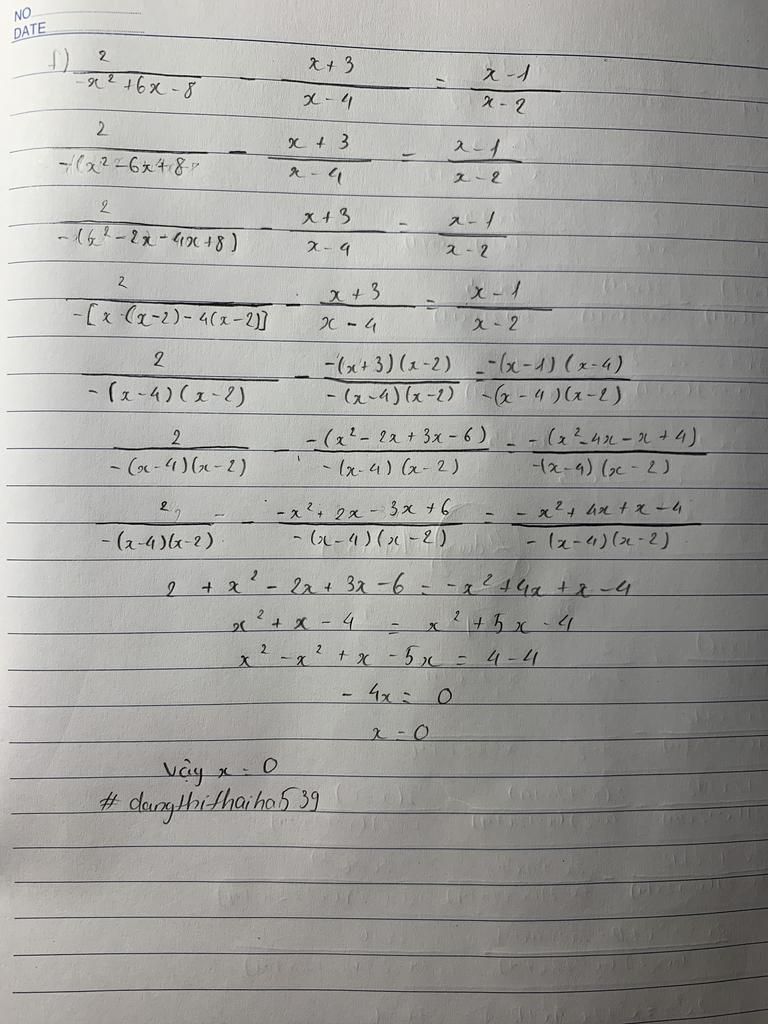 NO
DATE
f) 2/(-x² + 6x - 8) - (x + 3)/(x - 4) = (x - 1)/(x - 2)
2/(-1(x² - 6x + 8) - (x + 3)/(x - 4) = (x - 1)/(x - 2)
2/(-1(x² - 2x - 4x + 8)) - (x + 3)/(x - 4) = (x - 1)/(x - 2)
2/(-[x·(x - 2) - 4(x - 2)]) - (x + 3)/(x - 4) = (x - 1)/(x - 2)
2/(-(x - 4)(x - 2)) - (-(x + 3)(x - 2))/(-(x - 4)(x - 2)) = (-(x - 1)(x - 4))/(-(x - 4)(x - 2))
2/(-(x - 4)(x - 2)) - (-(x² - 2x + 3x - 6))/(-(x - 4)(x - 2)) = (-(x² - 4x - x + 4))/(-(x - 4)(x - 2))
2/(-(x - 4)(x - 2)) - (-x² + 2x - 3x + 6)/(-(x - 4)(x - 2)) = (-x² + 4x + x - 4)/(-(x - 4)(x - 2))
2 + x² - 2x + 3x - 6 = -x² + 4x + x - 4
x² + x - 4 = x² + 5x - 4
x² - x² + x - 5x = 4 - 4
- 4x = 0
x = 0
Vậy x = 0
# dangthithaiha539